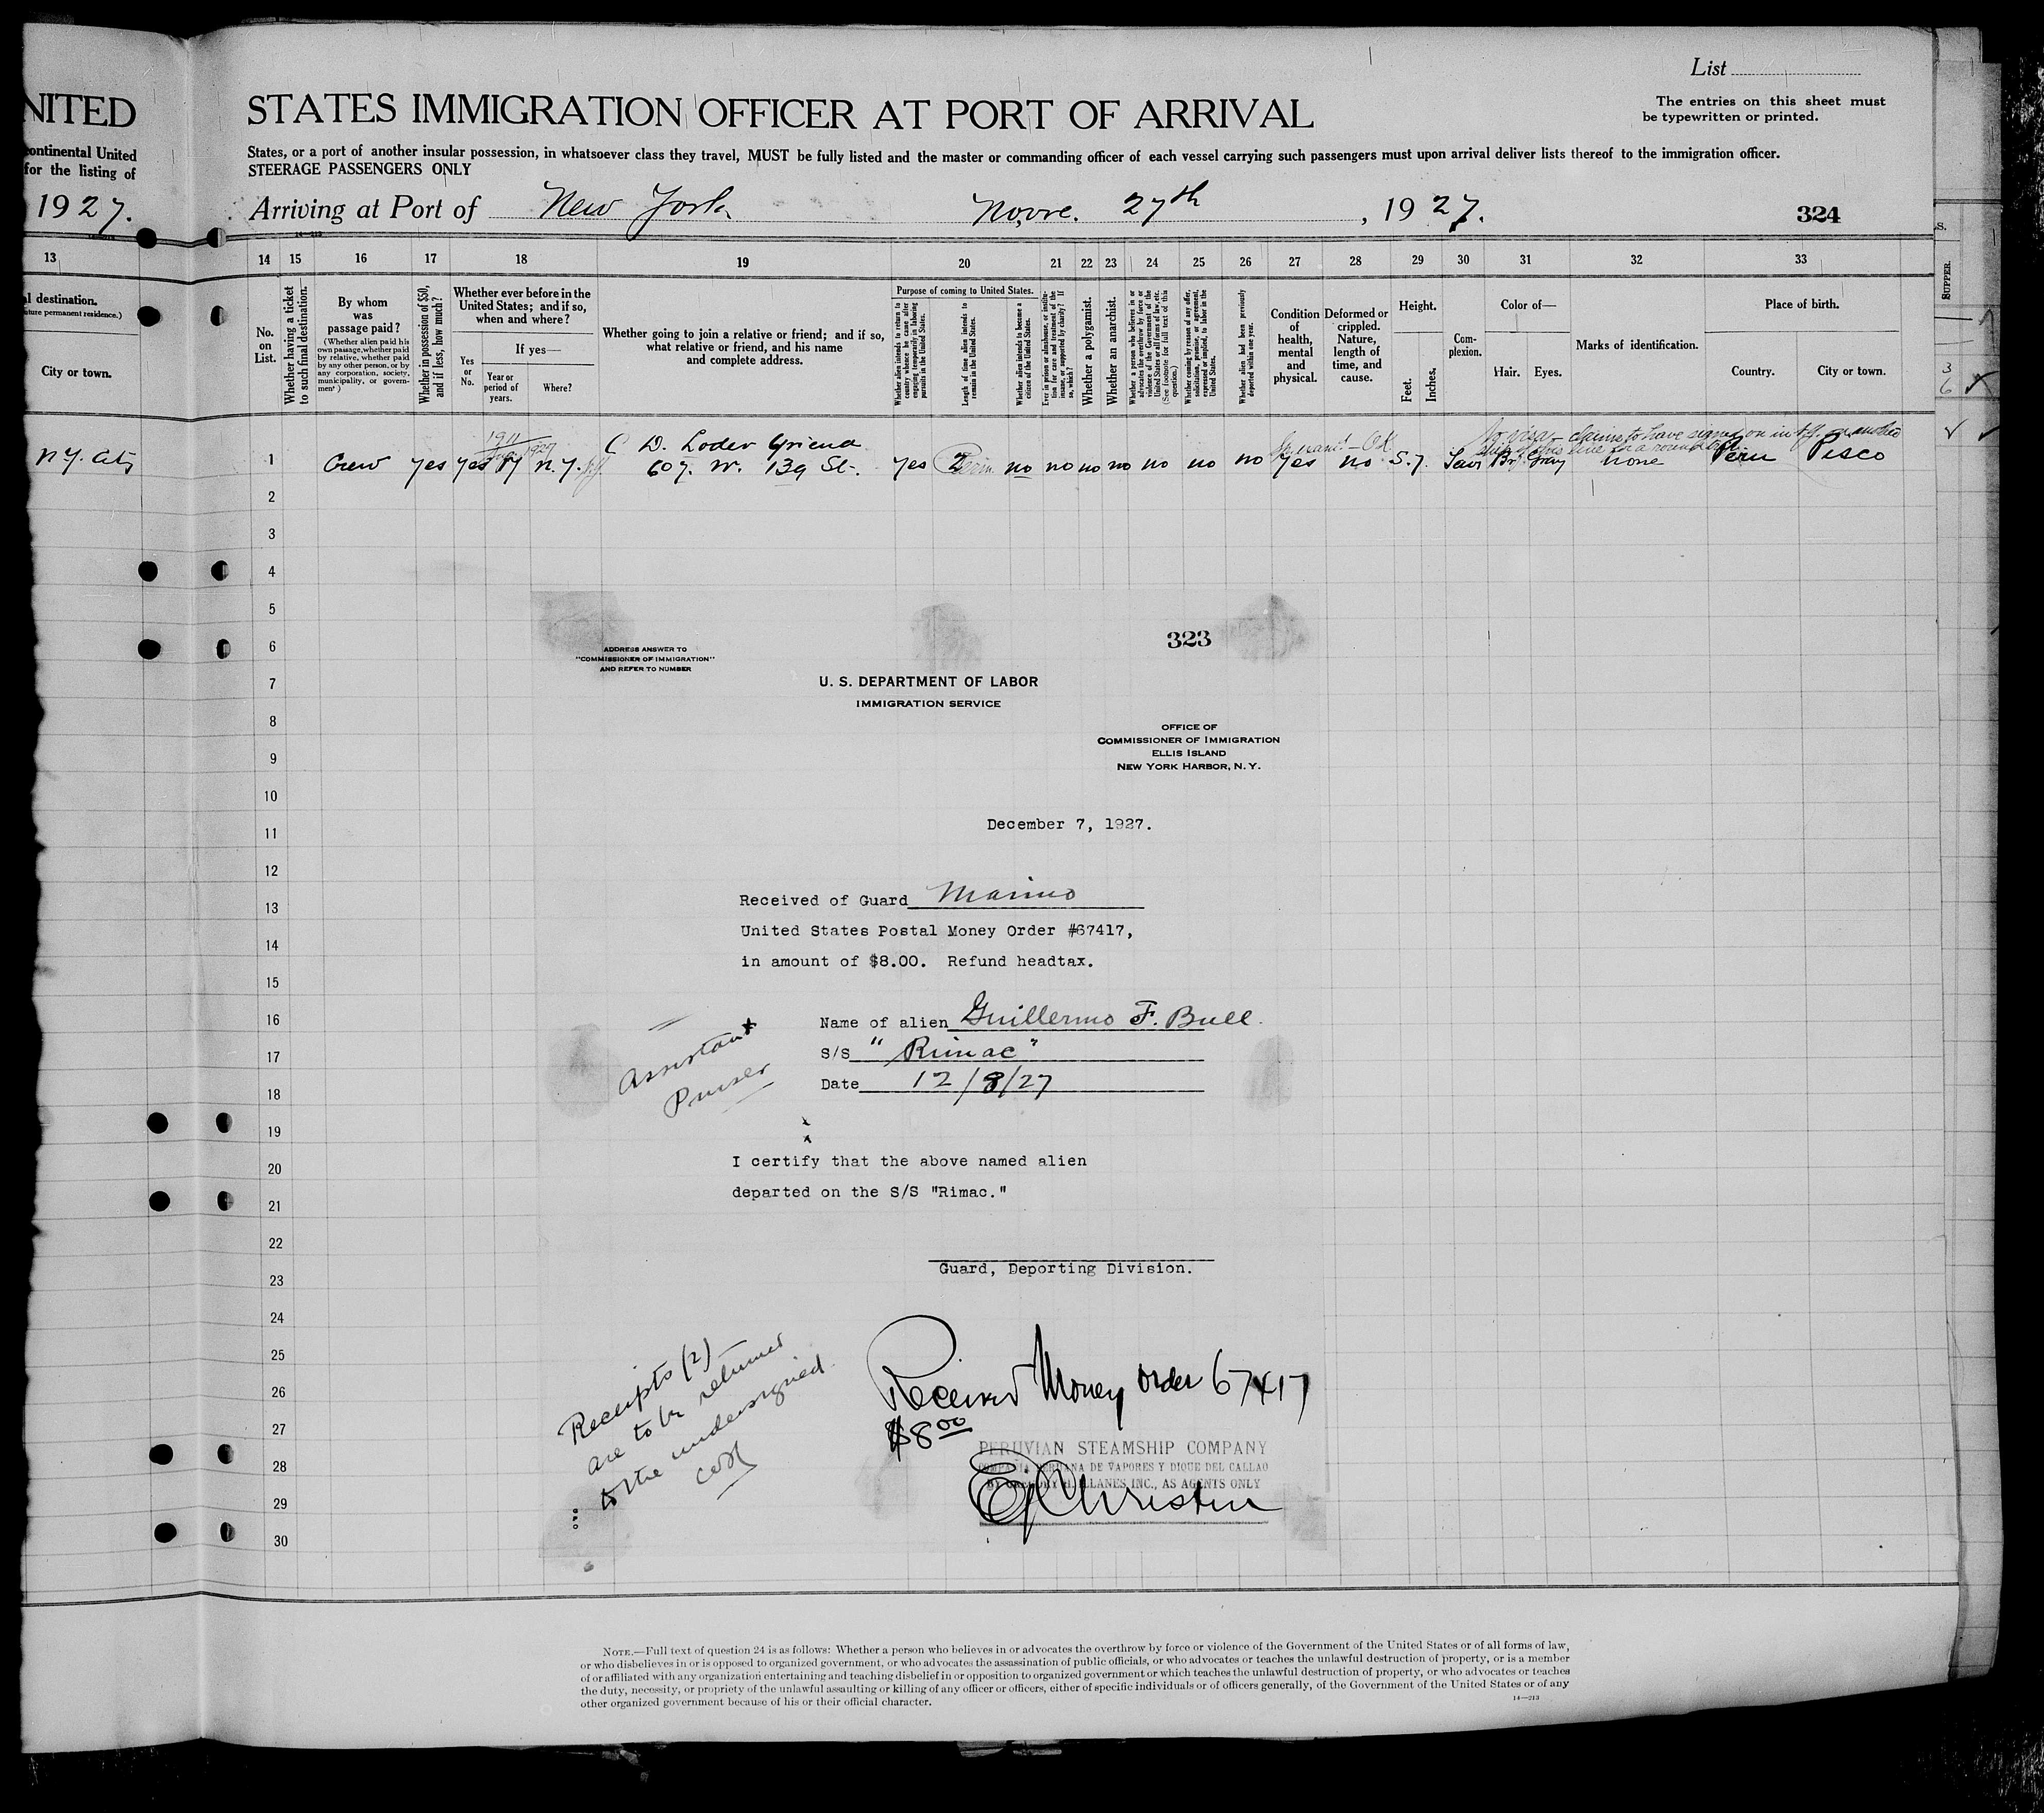 List
The entries on this sheet must
be typewritten or printed.
NITED
STATES IMMIGRATION OFFICER AT PORT OF ARRIVAL
ontinental United
for the listing of
States, or a port of another insular possession, in whatsoever class they travel, MUST be fully listed and the master or commanding officer of each vessel carrying such passengers must upon arrival deliver lists thereof to the immigration officer.
STEERAGE PASSENGERS ONLY
1927.
Arriving at Port of New York 27th, 1927.
324
13 14 15 16 17 18 19 20 21 22 23 24 25 26 27 28 29 30 31 32 33
l destination.
uture permanent residence.)
City or town.
No. on List.
Whether having a ticket to such final destination.
By whom was passage paid?
(Whether alien paid his own passage, whether paid by relative, whether paid by any other person, or by any corporation, society, municipality, or government)
Whether in possession of $50, and if less, how much?
Whether ever before in the United States; and if so, when and where?
Yes or No.
If yes—
Year or period of years.
Where?
Whether going to join a relative or friend; and if so, what relative or friend, and his name and complete address.
Purpose of coming to United States.
Whether alien intends to return to country whence he came after engaging temporarily in laboring pursuits in the United States.
Length of time alien intends to remain in the United States.
Whether alien intends to become a citizen of the United States.
Ever in prison or almshouse, or institution for care and treatment of the insane, or supported by charity? If so, which?
Whether a polygamist.
Whether an anarchist.
Whether a person who believes in or advocates the overthrow by force or violence of the Government of the United States or all forms of law, etc. (See footnote for full text of this question.)
Whether coming by reason of any offer, solicitation, promise, or agreement, expressed or implied, to labor in the United States.
Whether alien had been previously deported within one year.
Condition of health, mental and physical.
Deformed or crippled. Nature, length of time, and cause.
Height.
Feet.
Inches.
Complexion.
Color of—
Hair.
Eyes.
Marks of identification.
Place of birth.
Country.
City or town.
SUPPER.
N.Y. City
No visa - claims to have signed on in
1911
D. Loder friend
1 Crew yes yes N.Y. 607. W. 139 St. yes no no no no no no no yes no 5.7. Br. Gray none Peru Pisco
2
3
4
5
6
7
8
9
10
11
12
13
14
15
16
17
18
19
20
21
22
23
24
25
26
27
28
29
30
323
ADDRESS ANSWER TO
"COMMISSIONER OF IMMIGRATION"
AND REFER TO NUMBER
U. S. DEPARTMENT OF LABOR
IMMIGRATION SERVICE
OFFICE OF
COMMISSIONER OF IMMIGRATION
ELLIS ISLAND
NEW YORK HARBOR, N. Y.
December 7, 1927.
Received of Guard Marino
United States Postal Money Order #67417,
in amount of $8.00. Refund headtax.
Name of alien Guillermo F. Bull.
S/S "Rimac"
Date 12/8/27
Assistant
Purser
I certify that the above named alien
departed on the S/S "Rimac."
Guard, Deporting Division.
Receipts (2)
are to be returned
to the undersigned
Received Money order 67417
$8.00
PERUVIAN STEAMSHIP COMPANY
COMPAÑIA PERUANA DE VAPORES Y DIQUE DEL CALLAO
INC., AS AGENTS ONLY
NOTE.—Full text of question 24 is as follows: Whether a person who believes in or advocates the overthrow by force or violence of the Government of the United States or of all forms of law,
or who disbelieves in or is opposed to organized government, or who advocates the assassination of public officials, or who advocates or teaches the unlawful destruction of property, or is a member
of or affiliated with any organization entertaining and teaching disbelief in or opposition to organized government or which teaches the unlawful destruction of property, or who advocates or teaches
the duty, necessity, or propriety of the unlawful assaulting or killing of any officer or officers, either of specific individuals or of officers generally, of the Government of the United States or of any
other organized government because of his or their official character.
14—213